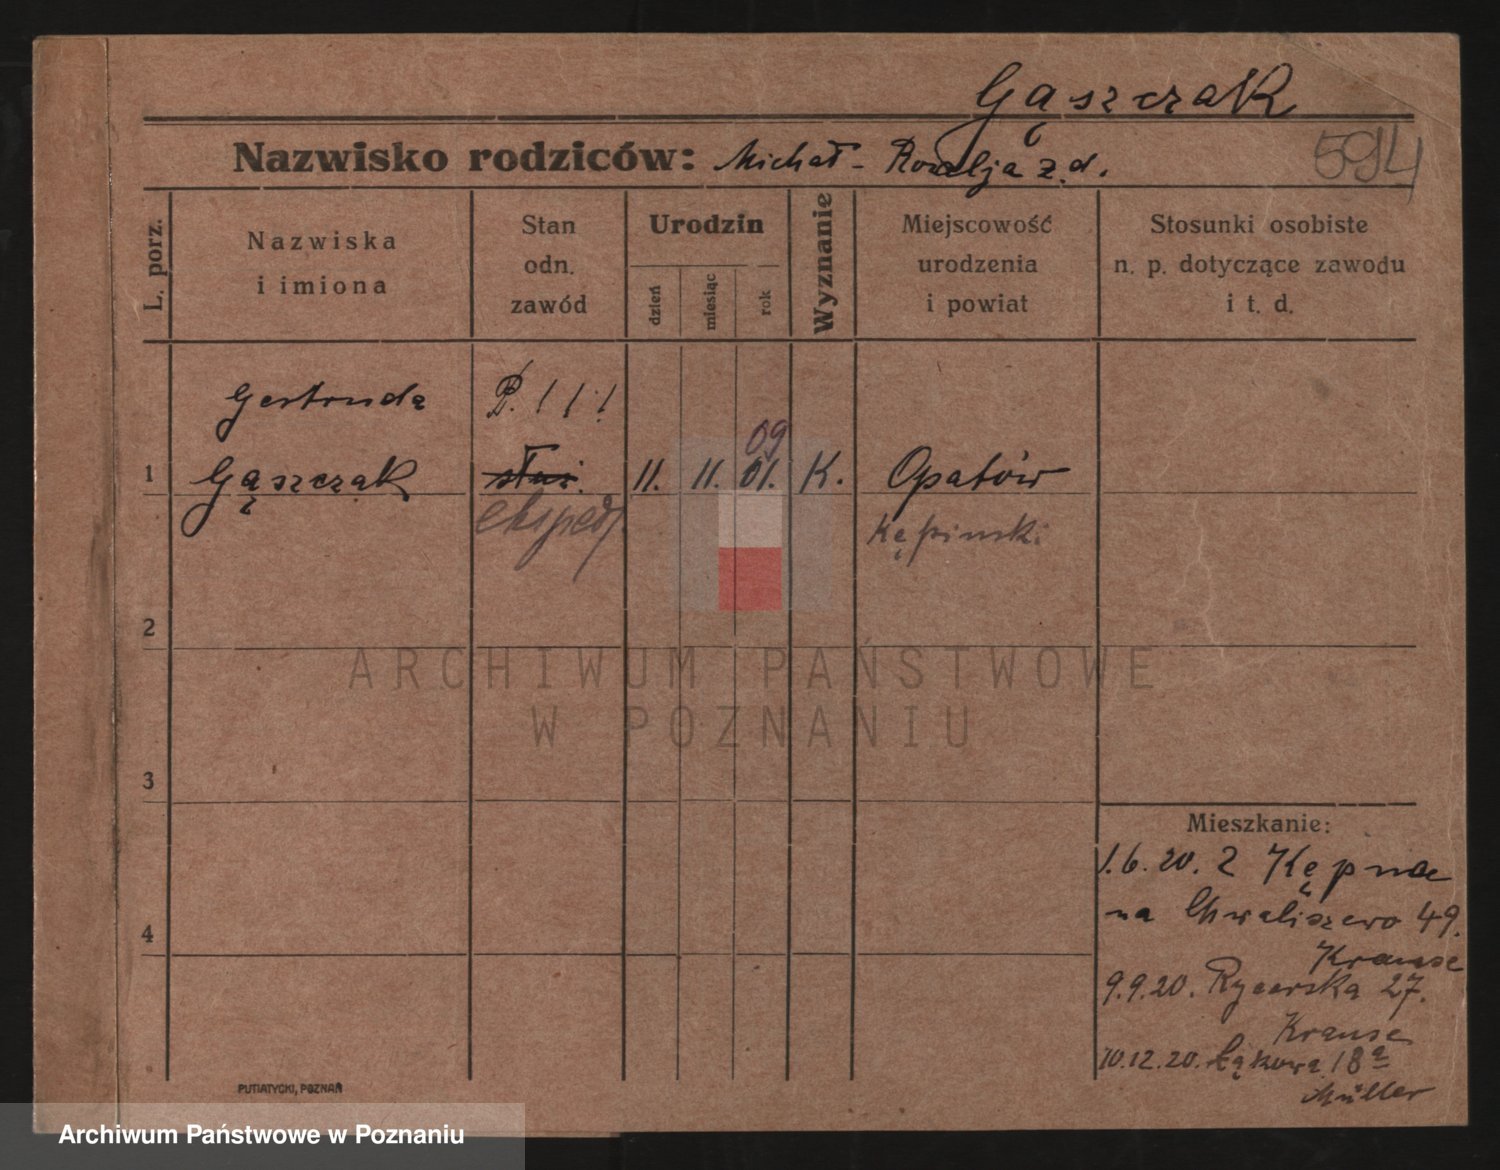 Gąszczak
Nazwisko rodziców: Michał - Rozalja z. d.
594
L. porz.
Nazwiska
i imiona
Stan
odn.
zawód
Urodzin
dzień
miesiąc
rok
Wyznanie
Miejscowość
urodzenia
i powiat
Stosunki osobiste
n. p. dotyczące zawodu
i t. d.
Gertruda
P. ! ! !
09
1 Gąszczak służ. 11. 11. 01. K. Opatów
eksped. Kępinski
2
ARCHIWUM PAŃSTWOWE
W POZNANIU
3
Mieszkanie:
1.6.20. z Kępna
4 na Chwaliszewo 49.
Krause
9.9.20. Rycerska 27.
Krause
10.12.20. Łąkowa 18a
Müller
PUTIATYCKI, POZNAŃ
Archiwum Państwowe w Poznaniu